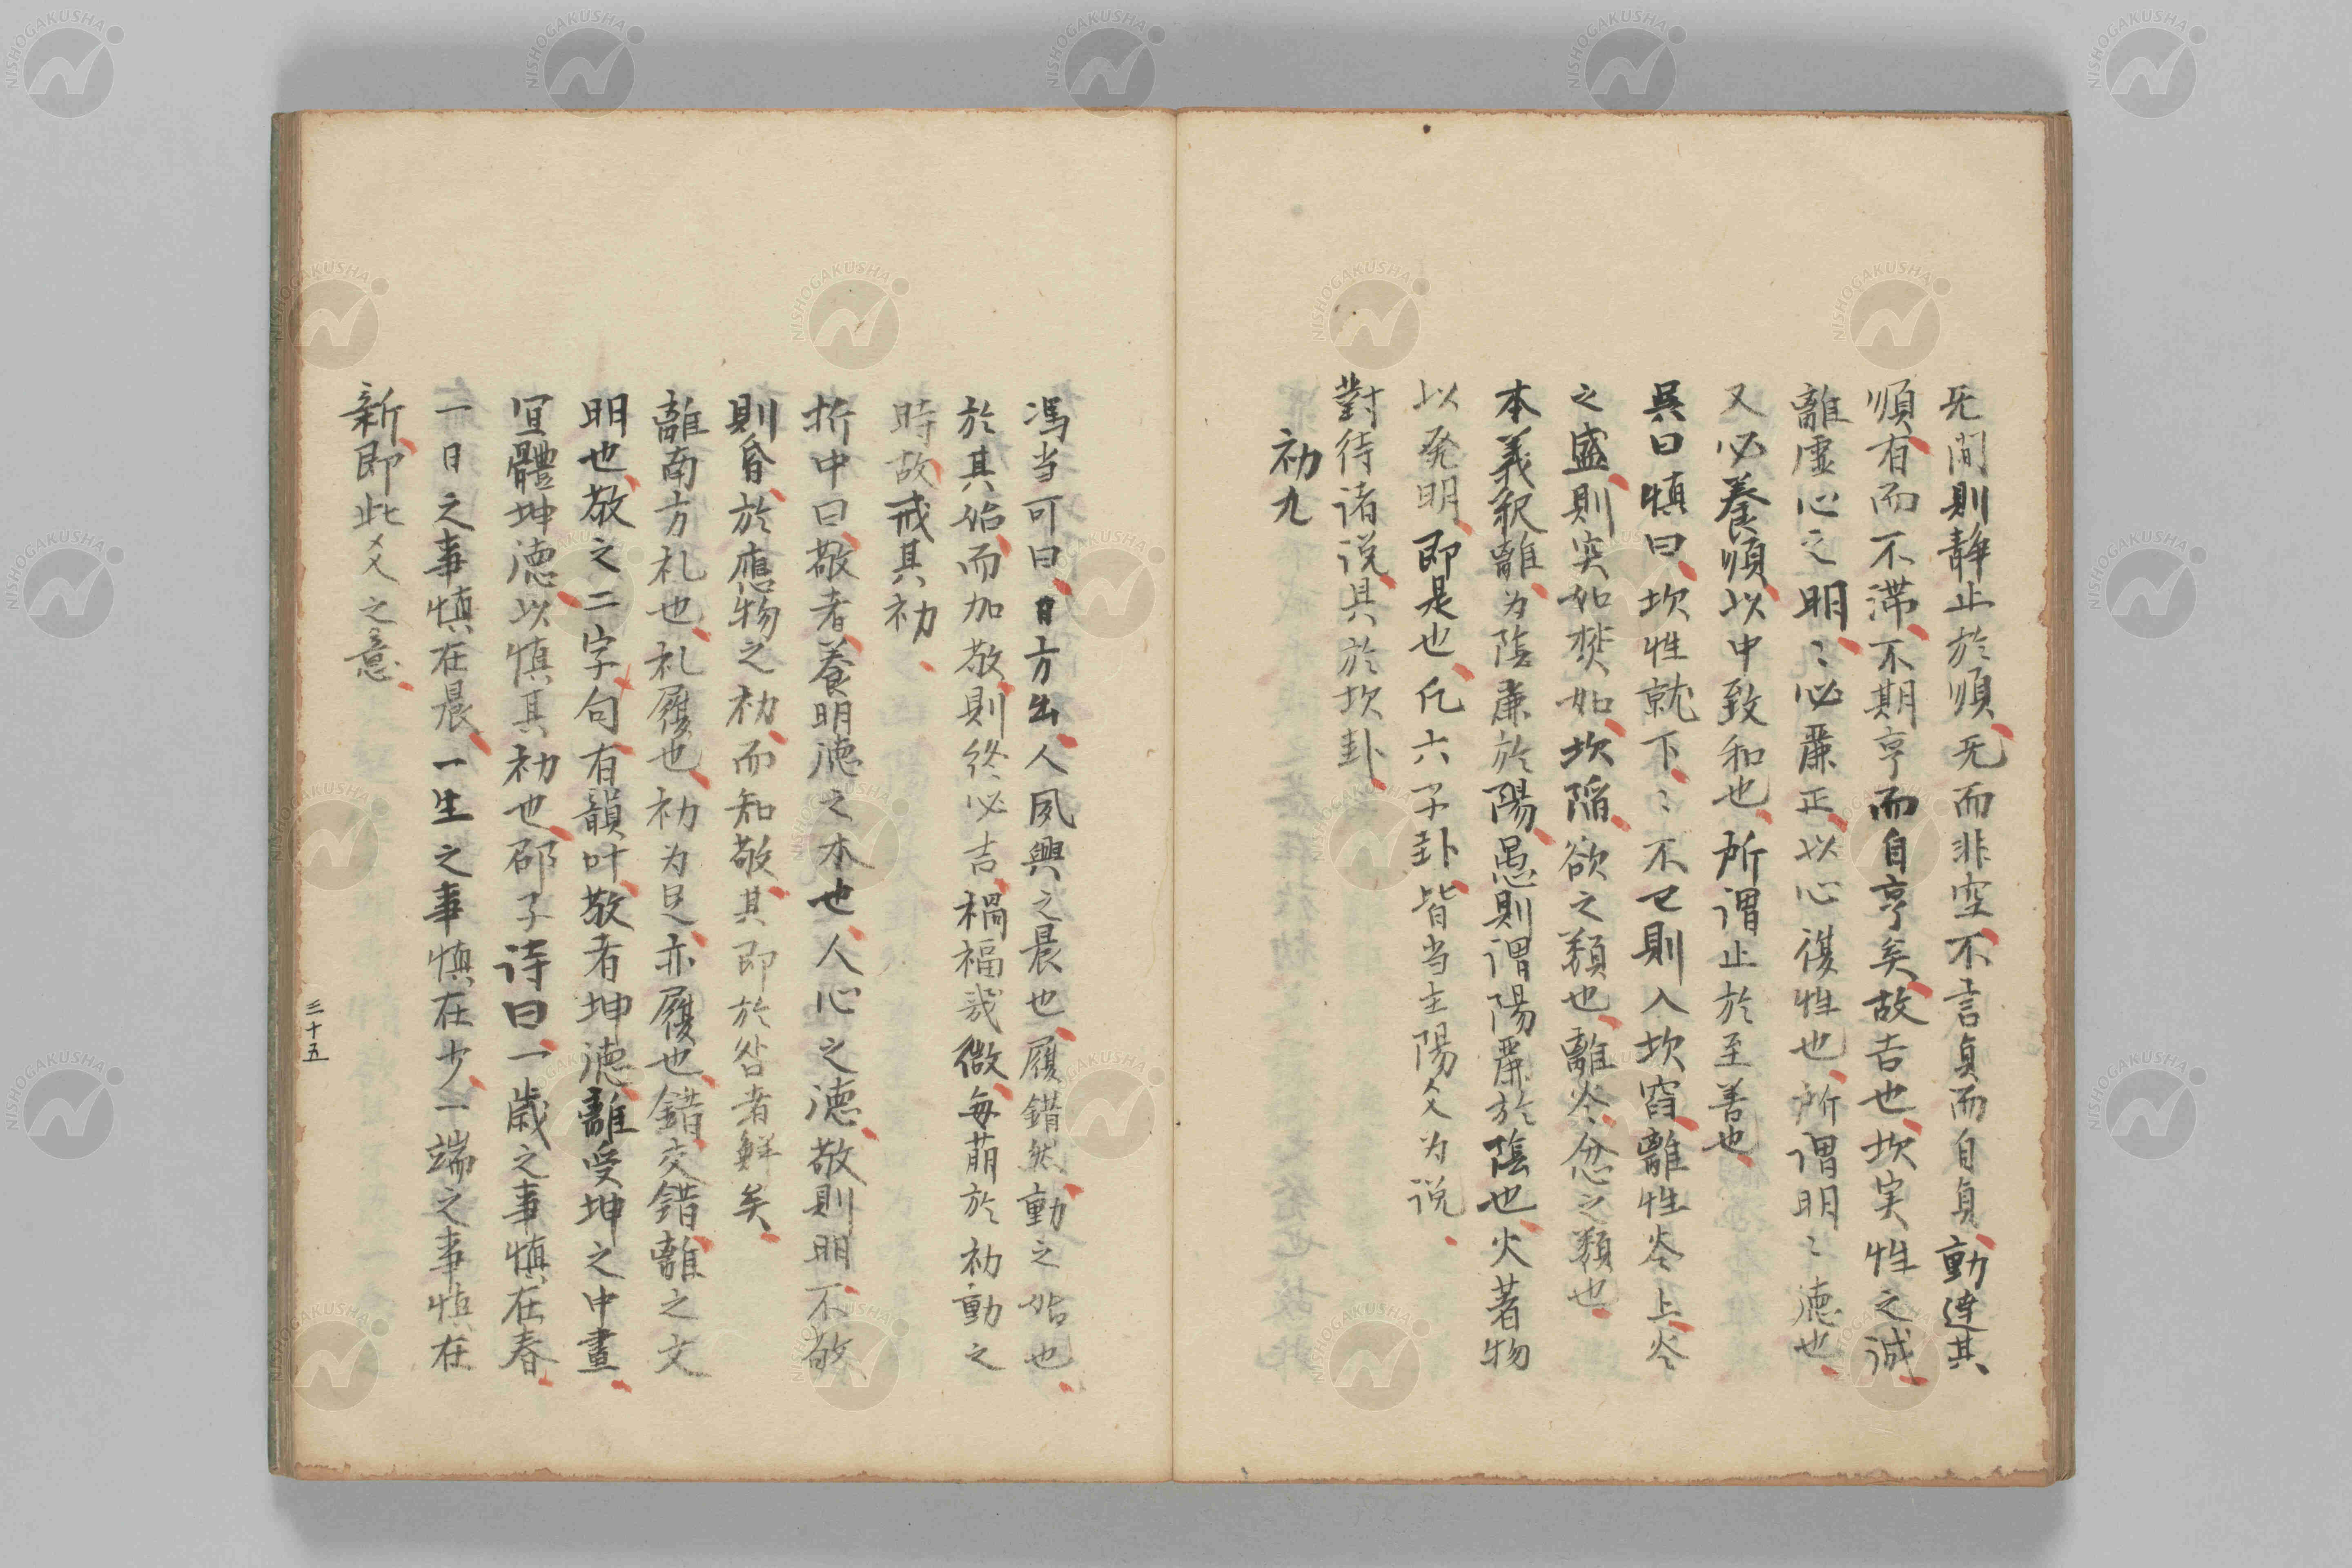 无間則静止於順无而非空不言貞而自貞動達其
順有而不滞不期亨而自亨矣故吉也坎実性之誠
離虚心之明〻必麗正以心復性也所謂明〻德也
又必養順以中致和也所謂止於至善也
呉曰慎曰坎性就下〻不已則入坎窞離性炎上炎
之盛則突如焚如坎陥欲之類也離炎忿之類也
本義釈離为陰麗於陽愚則謂陽麗於陰也火著物
以発明即是也凢六子卦皆当主陽爻为说
對待诸说具於坎卦
初九
馮当可曰日方出人夙興之晨也履錯然動之始也
於其始而加敬則終必吉禍福幾微每萠於初動之
時故戒其初
折中曰敬者養明德之本也人心之德敬則明不敬
則昏於應物之初而知敬其即於咎者鮮矣
離南方礼也礼履也初为足亦履也錯交錯離之文
明也敬之二字句有韻叶敬者坤德離受坤之中畫
宜體坤德以慎其初也邵子诗曰一歳之事慎在春
一日之事慎在晨一生之事慎在少一端之事慎在
新即此爻之意
三十五
NISHOGAKUSHA